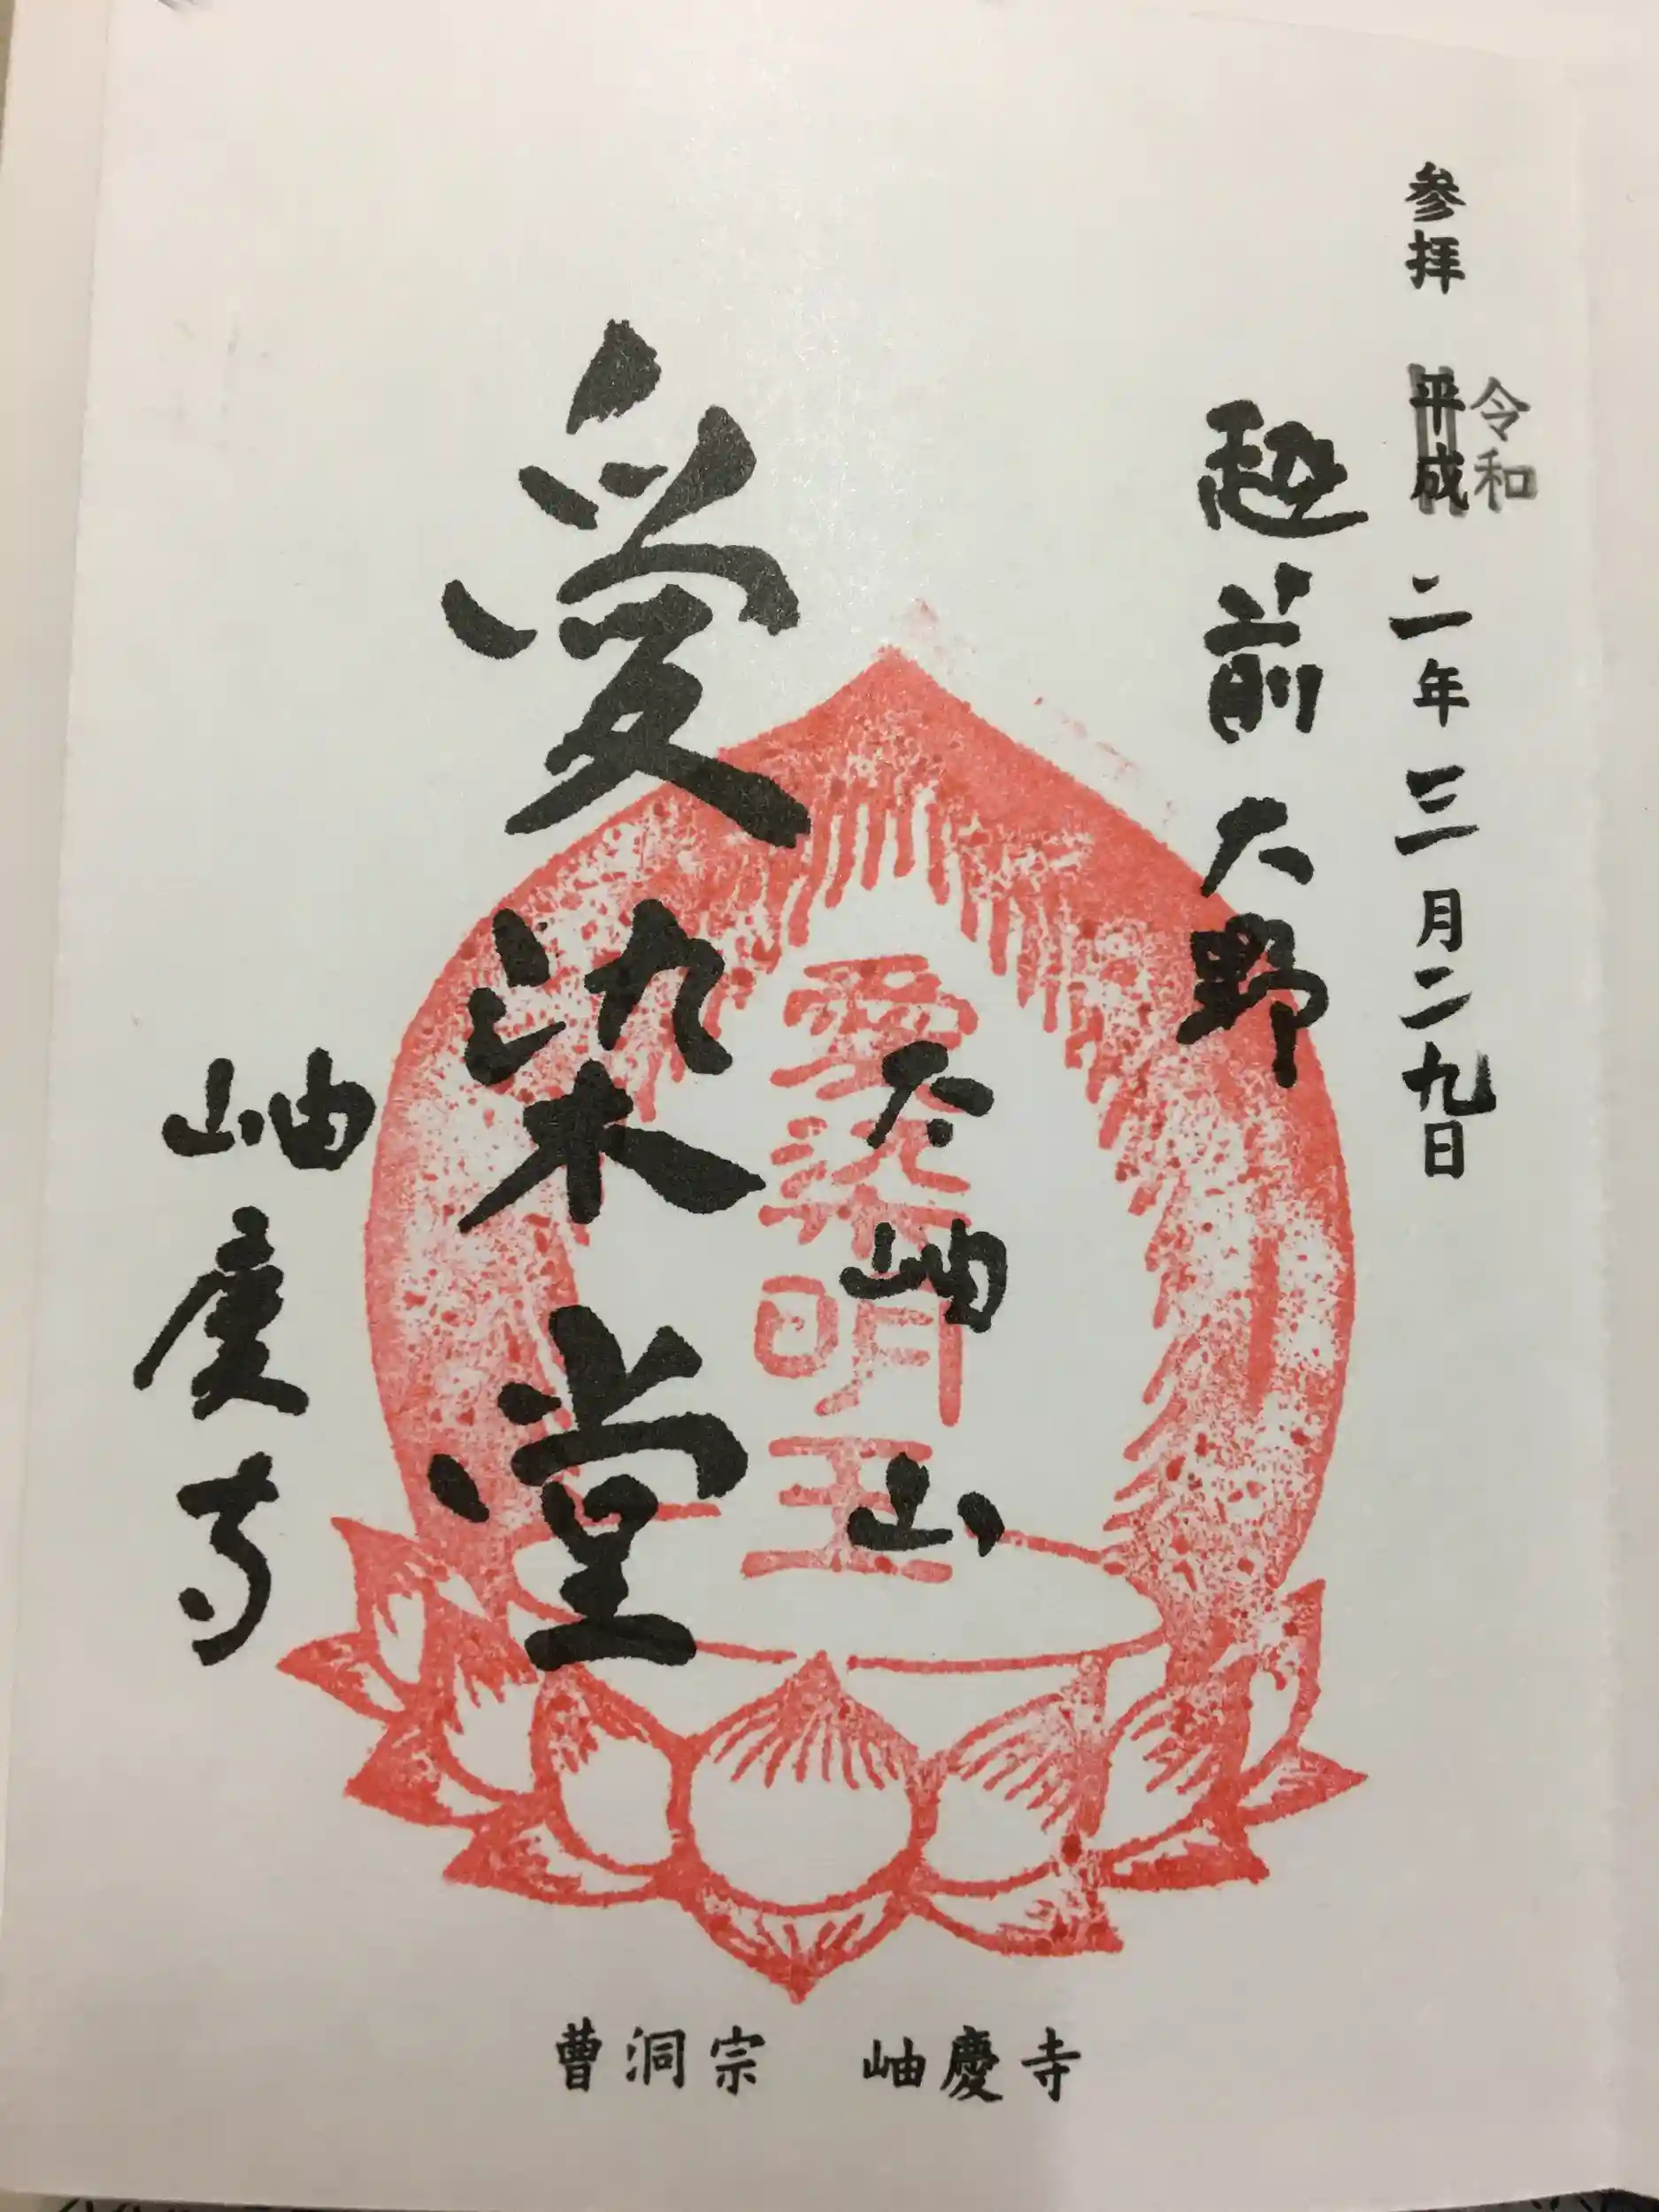 参拝 平成 二年三月二九日
令和
越前大野
大岫山
愛染明王
愛染堂
岫慶寺
曹洞宗 岫慶寺